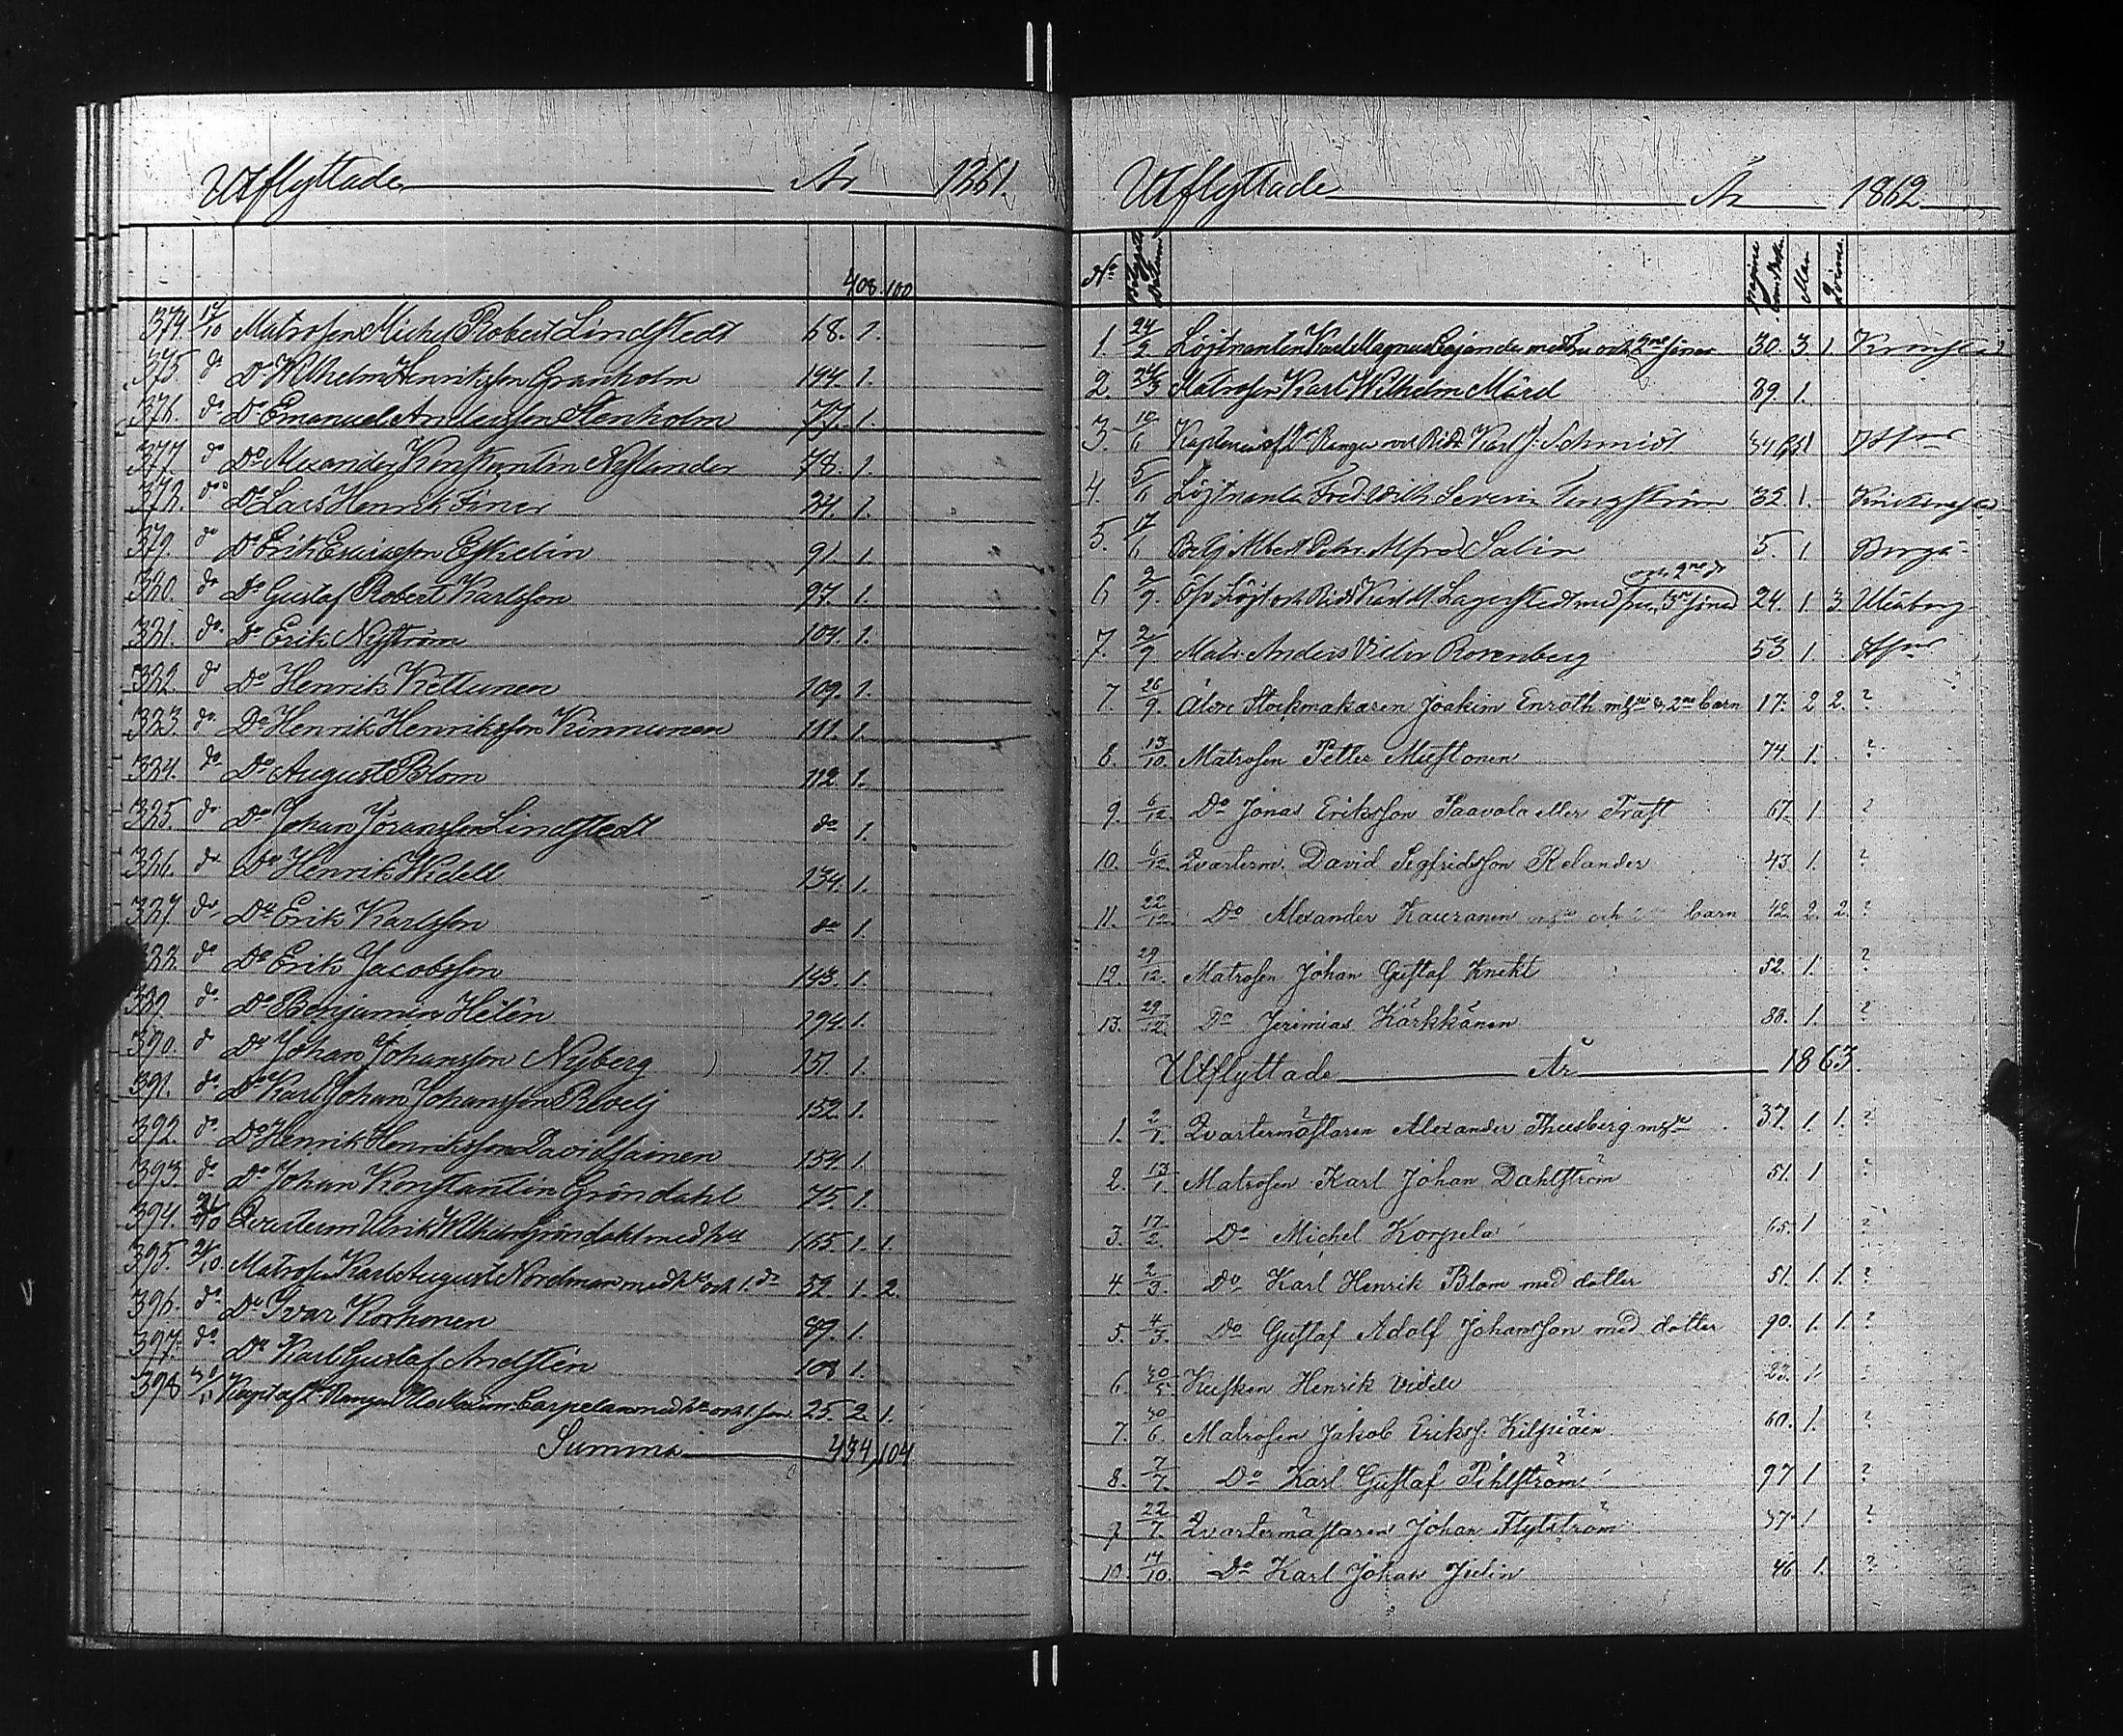 Utflyttade År 1861.
408. 100
374. 17/10 Matrosen Michel Robert Lindstedt 68. 1.
375. do Do Wilhelm Henriksson Granholm 194. 1.
376. do Do Emanuel Andersson Stenholm 77. 1.
377. do Do Alexander Konstantin Nylander 78. 1.
378. do Do Lars Henrik 24. 1.
379. do Do Erik Ericsson Eskelin 91. 1.
380. do Do Gustaf Robert Karlsson 97. 1.
381. do Do Erik Nyström 104. 1.
382. do Do Henrik Kettunen 109. 1.
383. do Do Henrik Henriksson Kinnunen 111. 1.
384. do Do August Blom 112. 1.
385. do Do Johan Jöransson Lindstedt do 1.
386. do Do Henrik Widell 134. 1.
387. do Do Erik Karlsson do 1.
388. do Do Erik Jacobsson 143. 1.
389. do Do Benjamin Helén 294. 1.
390. do Do Johan Johansson Nyberg 151. 1.
391. do Do Karl Johan Johansson 152. 1.
392. do Do Henrik Henriksson Davidsainen 154. 1.
393. do Do Johan Konstantin Gröndahl 75. 1.
394. Ulrik Wilhelm Gröndahl med hu 165. 1. 1.
395. 21/10 Matrosen Karl August Nordman med hu och 1. dr 52. 1. 2.
396. do Do Ivar Korhonen 89. 1.
397. do Do Karl Gustaf Andstén 108 1.
398 Carpelan med hu och 1. son 25. 2. 1.
Summa 434, 104
Utflyttade År 1862
No Män Qvinnor
1. 24/2 Löjtnanten Karl Magnus med fru och 2ne söner 30. 3. 1.
2. 24/3 Matrosen Karl Wilhelm Mård 89. 1.
3. 10/6 Kaptenen af 2 Rangen och Ridd. Karl J. Schmidt 1 Hfors
4. 5/6 Löjtnanten Fred. Wilh. Severin Tengström 32. 1.
5. 17/6 Albert Petr. Alfred Salin 5. 1. Borgå
6 2/9. Öfv. Löjt och Ridd. Karl M. Lagerstedt med fru, söner 24. 1. 3. Uleåborg
7. 2/9. Matr. Anders Victor Rosenberg 53. 1. Hfors
7. 26/9. Äldre Stockmakaren Joakim Enroth m hu & 2ne barn 17. 2 2. ?
8. 13/10. Matrosen Petter Mustonen 74. 1. ?
9. 6/12 Do Jonas Eriksson Paavola eller Traft 67. 1. ?
10. 6/12. Qvarterm. David Segfridsson Relander 43. 1. ?
11. 22/12. Do Alexander Kauranen m hu och 2ne barn 42. 2. 2. ?
12. 29/12. Matrosen Johan Gustaf Knekt 52. 1. ?
13. 29/12. Do Jerimias Kärkkänen 88. 1. ?
Utflyttade År 1863.
1. 2/1. Qvartermästaren Alexander Thusberg m hu 37. 1. 1. ?
2. 13/1. Matrosen Karl Johan Dahlström 51. 1 ?
3. 17/2. Do Michel Korpela 65. 1. ?
4. 2/3. Do Karl Henrik Blom med dotter 51. 1. 1. ?
5. 4/5. Do Gustaf Adolf Johansson med dotter 90. 1. 1. ?
6. 30/5. Kusken Henrik Videll 23. 1. ?
7. 30/6. Matrosen Jakob Erikss. Kilpiäin 60. 1. ?
8. 7/7. Do Karl Gustaf Pihlström 97 1. ?
9 22/7. Qvartermästaren Johan Flytström 37. 1 ?
10. 14/10. Do Karl Johan Julin 46 1. ?